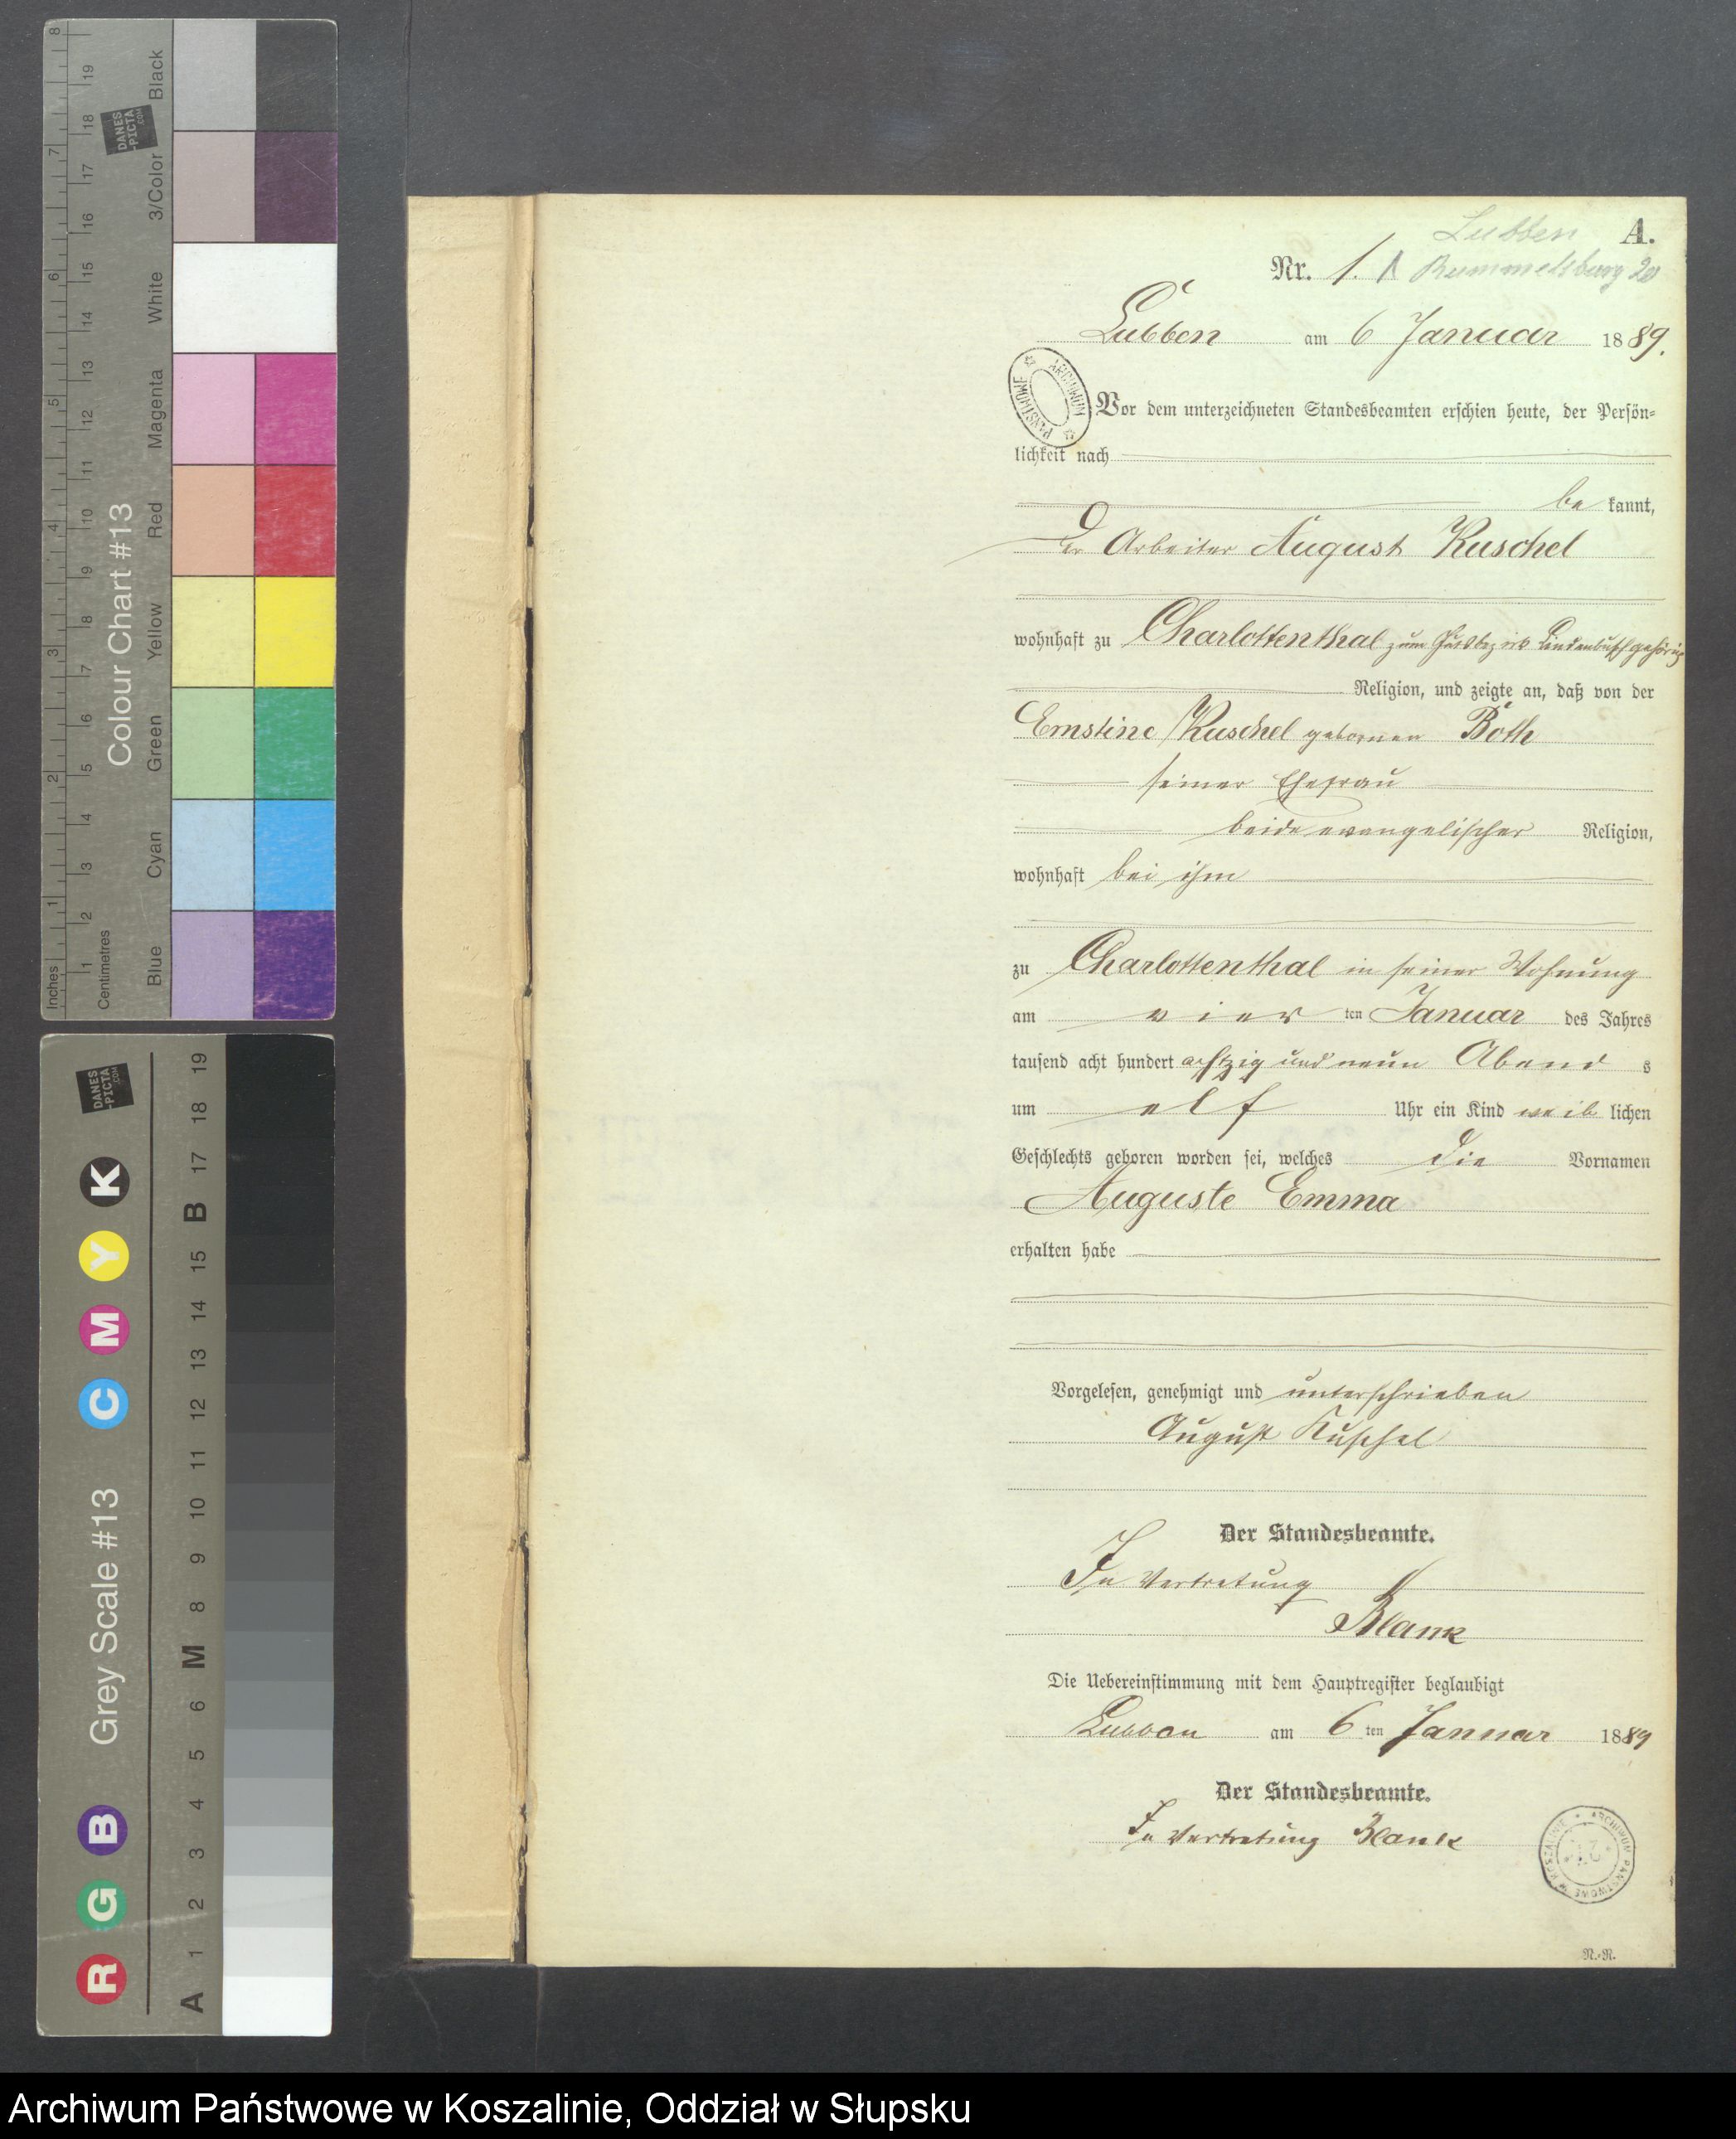 Lubben A.
Nr. 1. Rummelsburg 20
Lubben am 6 Januar 1889.
Vor dem unterzeichneten Standesbeamten erschien heute, der Persön-
lichkeit nach
be kannt,
der Arbeiter August Kuschel
wohnhaft zu Charlottenthal zum Gutsbezirk Lindenbusch gehörig
Religion, und zeigte an, daß von der
Ernstine Kuschel gebornen Both
seiner Ehefrau
beide evangelischer Religion,
wohnhaft bei ihm
zu Charlottenthal in seiner Wohnung
am vier ten Januar des Jahres
tausend acht hundert achtzig und neun Abend s
um elf Uhr ein Kind weib lichen
Geschlechts geboren worden sei, welches die Vornamen
Auguste Emma
erhalten habe
Vorgelesen, genehmigt und unterschrieben
August Kuschel
Der Standesbeamte.
In Vertretung
Blank
Die Uebereinstimmung mit dem Hauptregister beglaubigt
Lubben am 6 ten Januar 1889
Der Standesbeamte.
In Vertretung Blank
N.-N.
ARCHIWUM PAŃSTWOWE
ARCHIWUM PAŃSTWOWE W KOSZALINIE
Colour Chart #13
Inches
Centimetres
Blue Cyan Green Yellow Red Magenta White 3/Color Black
1 2 3 4 5 6 7 8
1 2 3 4 5 6 7 8 9 10 11 12 13 14 15 16 17 18 19
DANES-PICTA.COM
Grey Scale #13
R G B C M Y K
A 1 2 3 4 5 6 M 8 9 10 11 12 13 14 15 B 17 18 19
DANES-PICTA.COM
Archiwum Państwowe w Koszalinie, Oddział w Słupsku